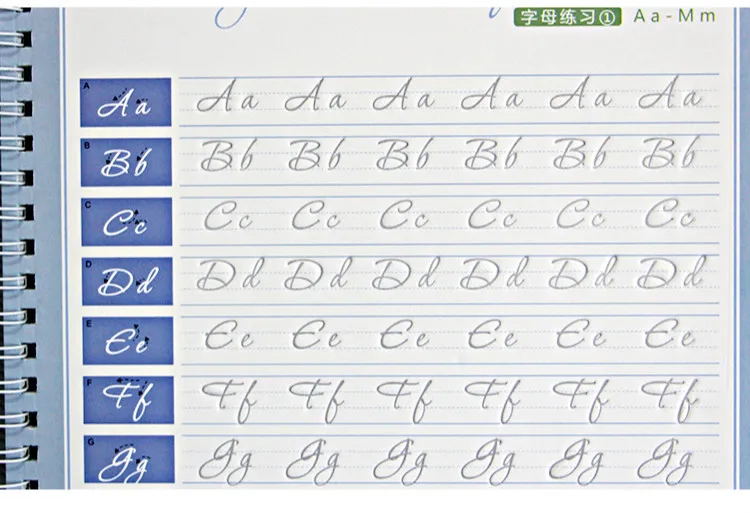 字母练习① Aa-Mm
A Aa Aa Aa Aa Aa Aa Aa
B Bb Bb Bb Bb Bb Bb Bb
C Cc Cc Cc Cc Cc Cc Cc
D Dd Dd Dd Dd Dd Dd Dd
E Ee Ee Ee Ee Ee Ee Ee
F Ff Ff Ff Ff Ff Ff Ff
G Gg Gg Gg Gg Gg Gg Gg